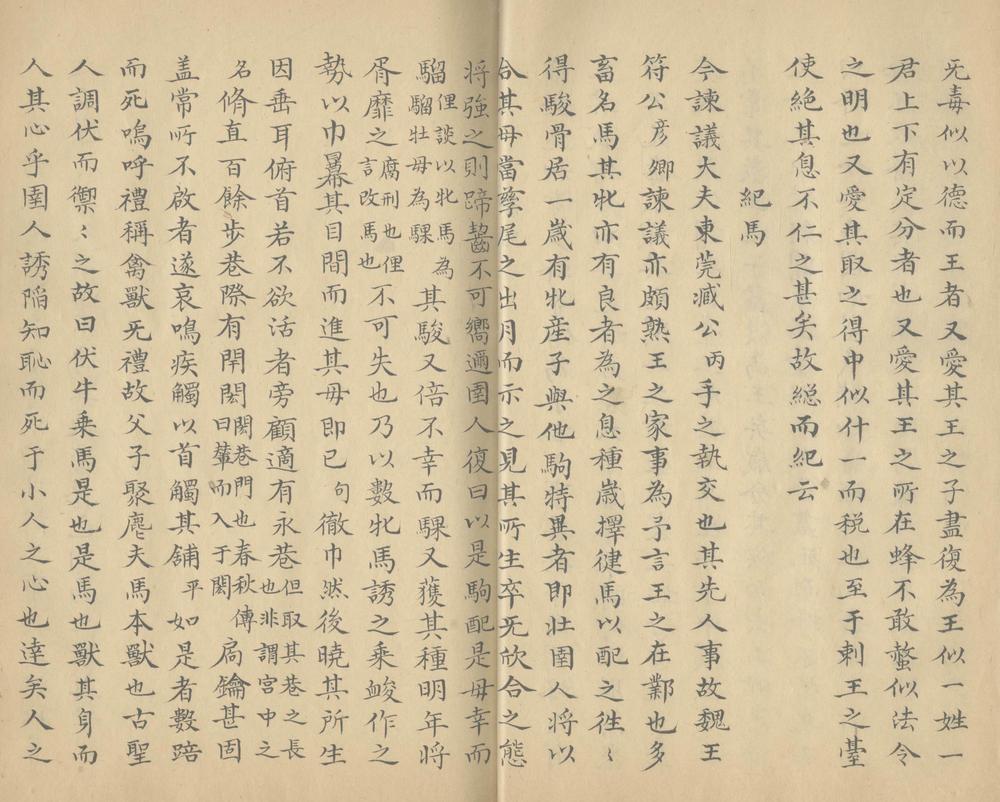 旡毒似以德而王者又愛其王之子盡復為王似一姓一
君上下有定分者也又愛其王之所在蜂不敢螫似法令
之明也又愛其取之得中似什一而稅也至于刺王之臺
使絕其息不仁之甚矣故總而紀云
紀馬
今諫議大夫東莞臧公丙手之執交也其先人事故魏王
符公彦卿諫議亦頗熟王之家事為予言王之在鄴也多
畜名馬其牝亦有良者為之息種歲擇健馬以配之徃〻
得駿骨居一歲有牝産子與他駒特異者即壯圉人將以
合其母當孳尾之出月而示之見其所生卒旡欣合之態
将強之則蹄齧不可嚮邇圉人復曰以是駒配是母幸而
騮俚談以牝馬為騮騮牡母為騍其駿又倍不幸而騍又獲其種明年将
胥靡之腐刑也俚言改馬也不可失也乃以數牝馬誘之乗㕙作之
勢以巾羃其目間而進其母即已句徹巾然後曉其所生
因垂耳俯首若不欲活者旁顧適有永巷但取其巷之長也非謂宮中之
名脩直百餘步巷際有閈閎閎巷門也春秋傳曰輦而入于閎扃鑰甚固
盖常所不啟者遂哀鳴疾觸以首觸其舖平如是者數踣
而死嗚呼禮稱禽獸旡禮故父子聚麀夫馬本獸也古聖
人調伏而禦〻之故曰伏牛乗馬是也是馬也獸其身而
人其心乎圉人誘陷知恥而死于小人之心也達矣人之